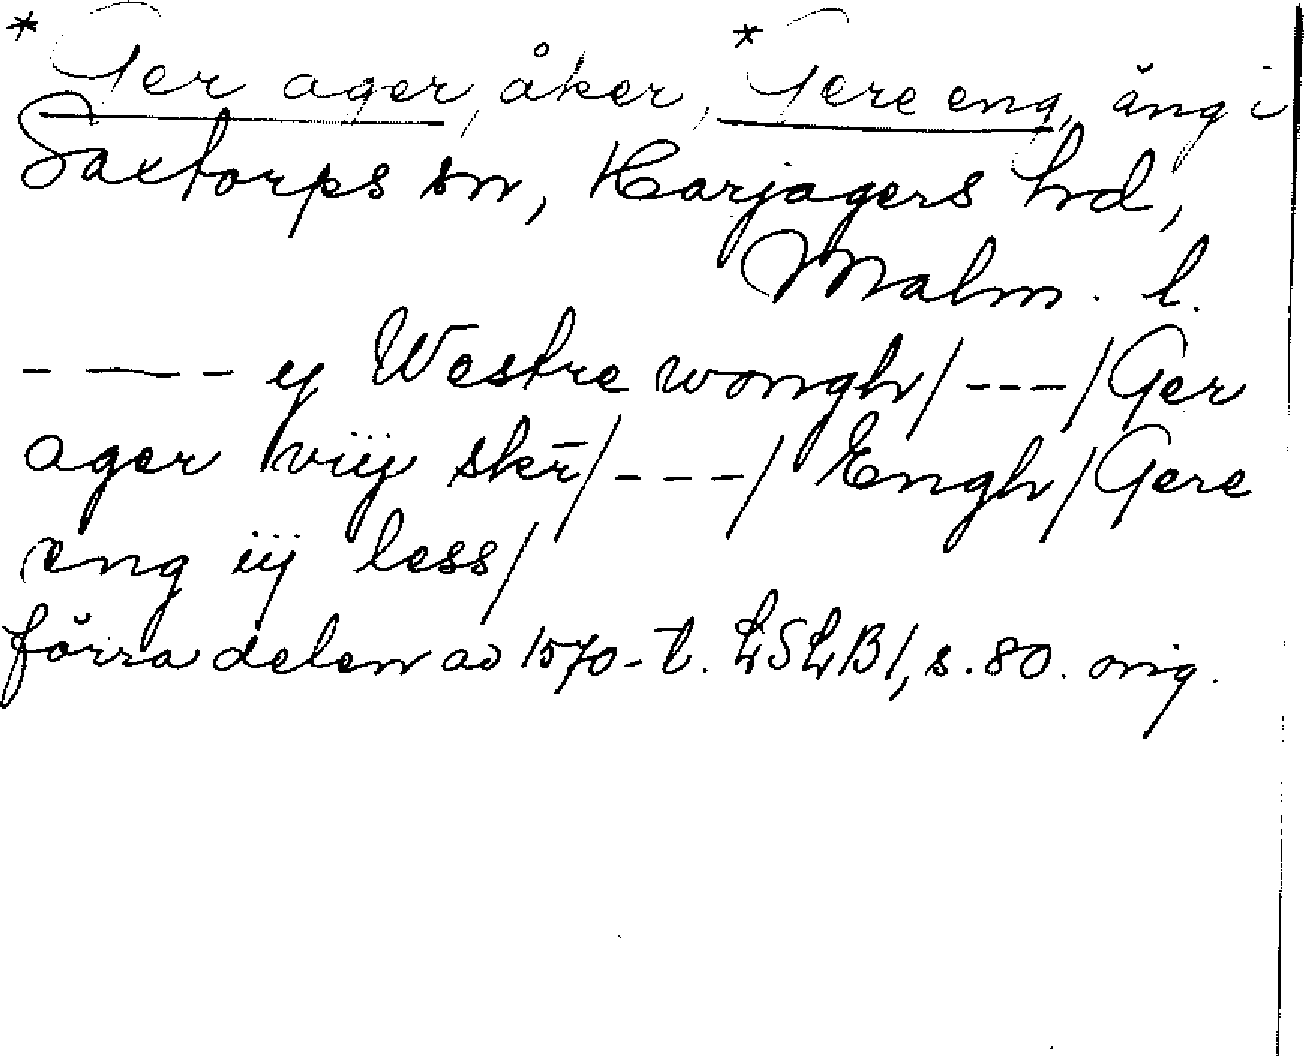 *Ger ager, åker, *Gere eng, äng i
Saxtorps sn, Harjagers hrd,
Malm. l.
- — - y Westre wongh/---/Ger
ager viij skr̄/---/Engh/Gere
eng iij less/
förra delen av 1570-t. LSLB1, s. 80. orig.